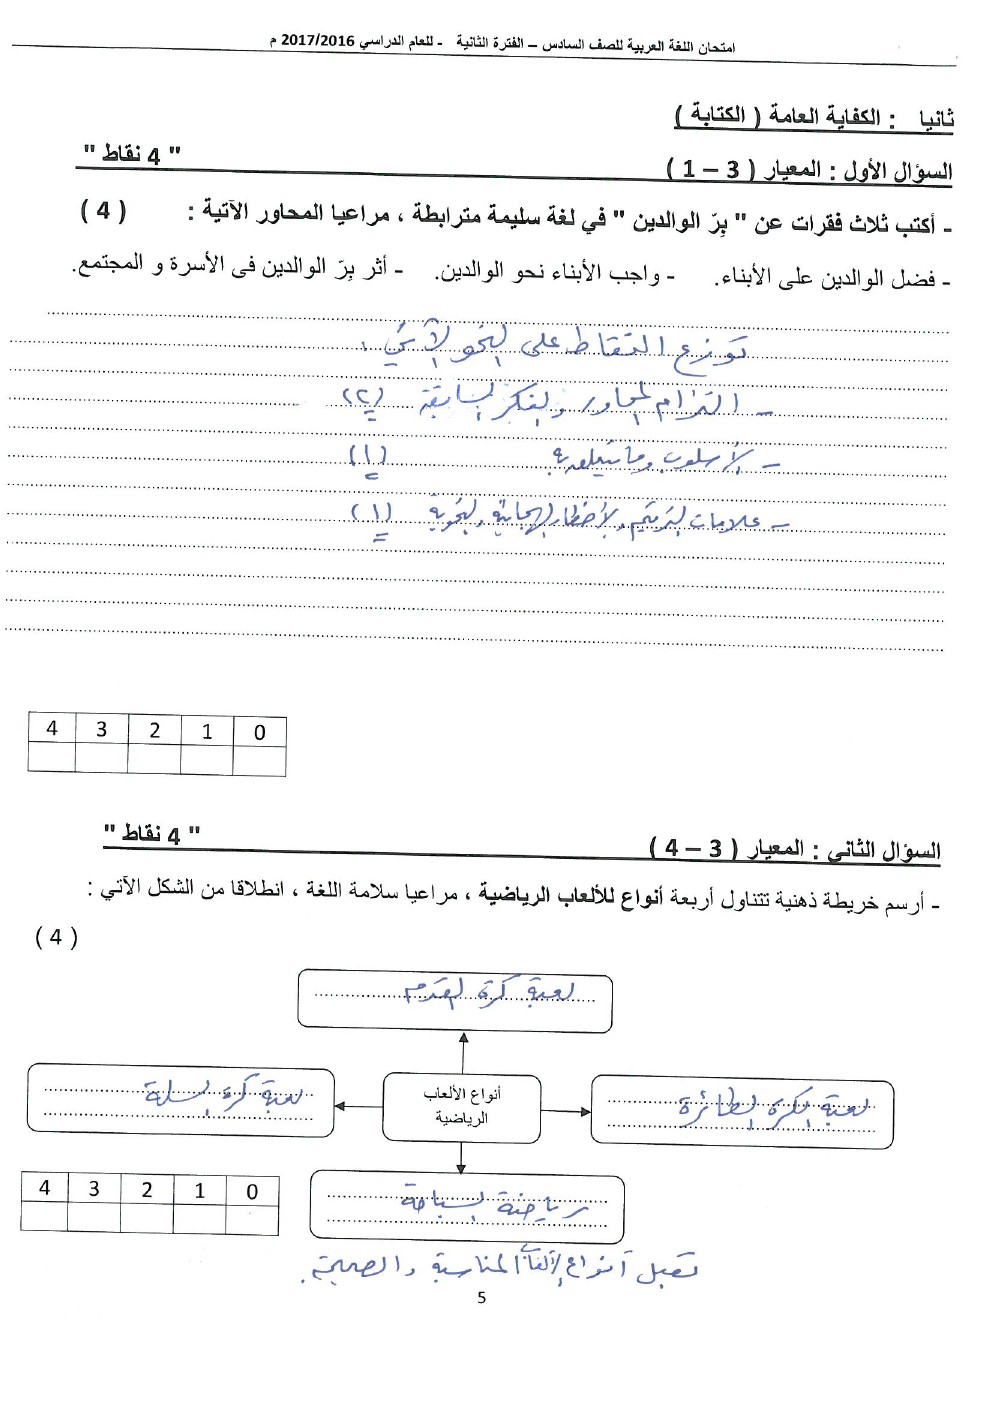 امتحان اللغة العربية للصف السادس – الفترة الثانية - للعام الدراسي 2017/2016 م
ثانيا : الكفاية العامة ( الكتابة )
السؤال الأول : المعيار ( 3 – 1 ) " 4 نقاط "
- أكتب ثلاث فقرات عن " بِرّ الوالدين " في لغة سليمة مترابطة ، مراعيا المحاور الآتية : ( 4 )
- فضل الوالدين على الأبناء. - واجب الأبناء نحو الوالدين. - أثر بِرّ الوالدين في الأسرة و المجتمع.
توزع النقاط على النحو الآتي :
- التزام المحاور والفكر السابقة (٢)
- الأسلوب وما يتعلق به (١)
- علامات الترقيم والأخطاء الهجائية والنحوية (١)
4 3 2 1 0
السؤال الثاني : المعيار ( 3 – 4 ) " 4 نقاط "
- أرسم خريطة ذهنية تتناول أربعة أنواع للألعاب الرياضية ، مراعيا سلامة اللغة ، انطلاقا من الشكل الآتي :
( 4 )
لعبة كرة القدم
لعبة الكرة الطائرة
أنواع الألعاب
الرياضية
لعبة كرة السلة
رياضة السباحة
4 3 2 1 0
تقبل أنواع الألعاب المناسبة والصحيحة.
5